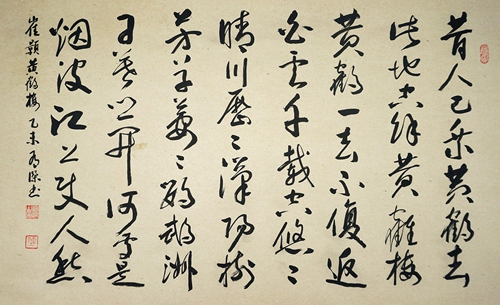 昔人已乘黄鶴去
此地空餘黄鶴楼
黄鶴一去不復返
白云千載空悠々
晴川歷々漢陽樹
芳草萋々鸚鵡洲
日暮乡関何處是
烟波江上使人愁
崔顥黄鶴楼 乙未 书